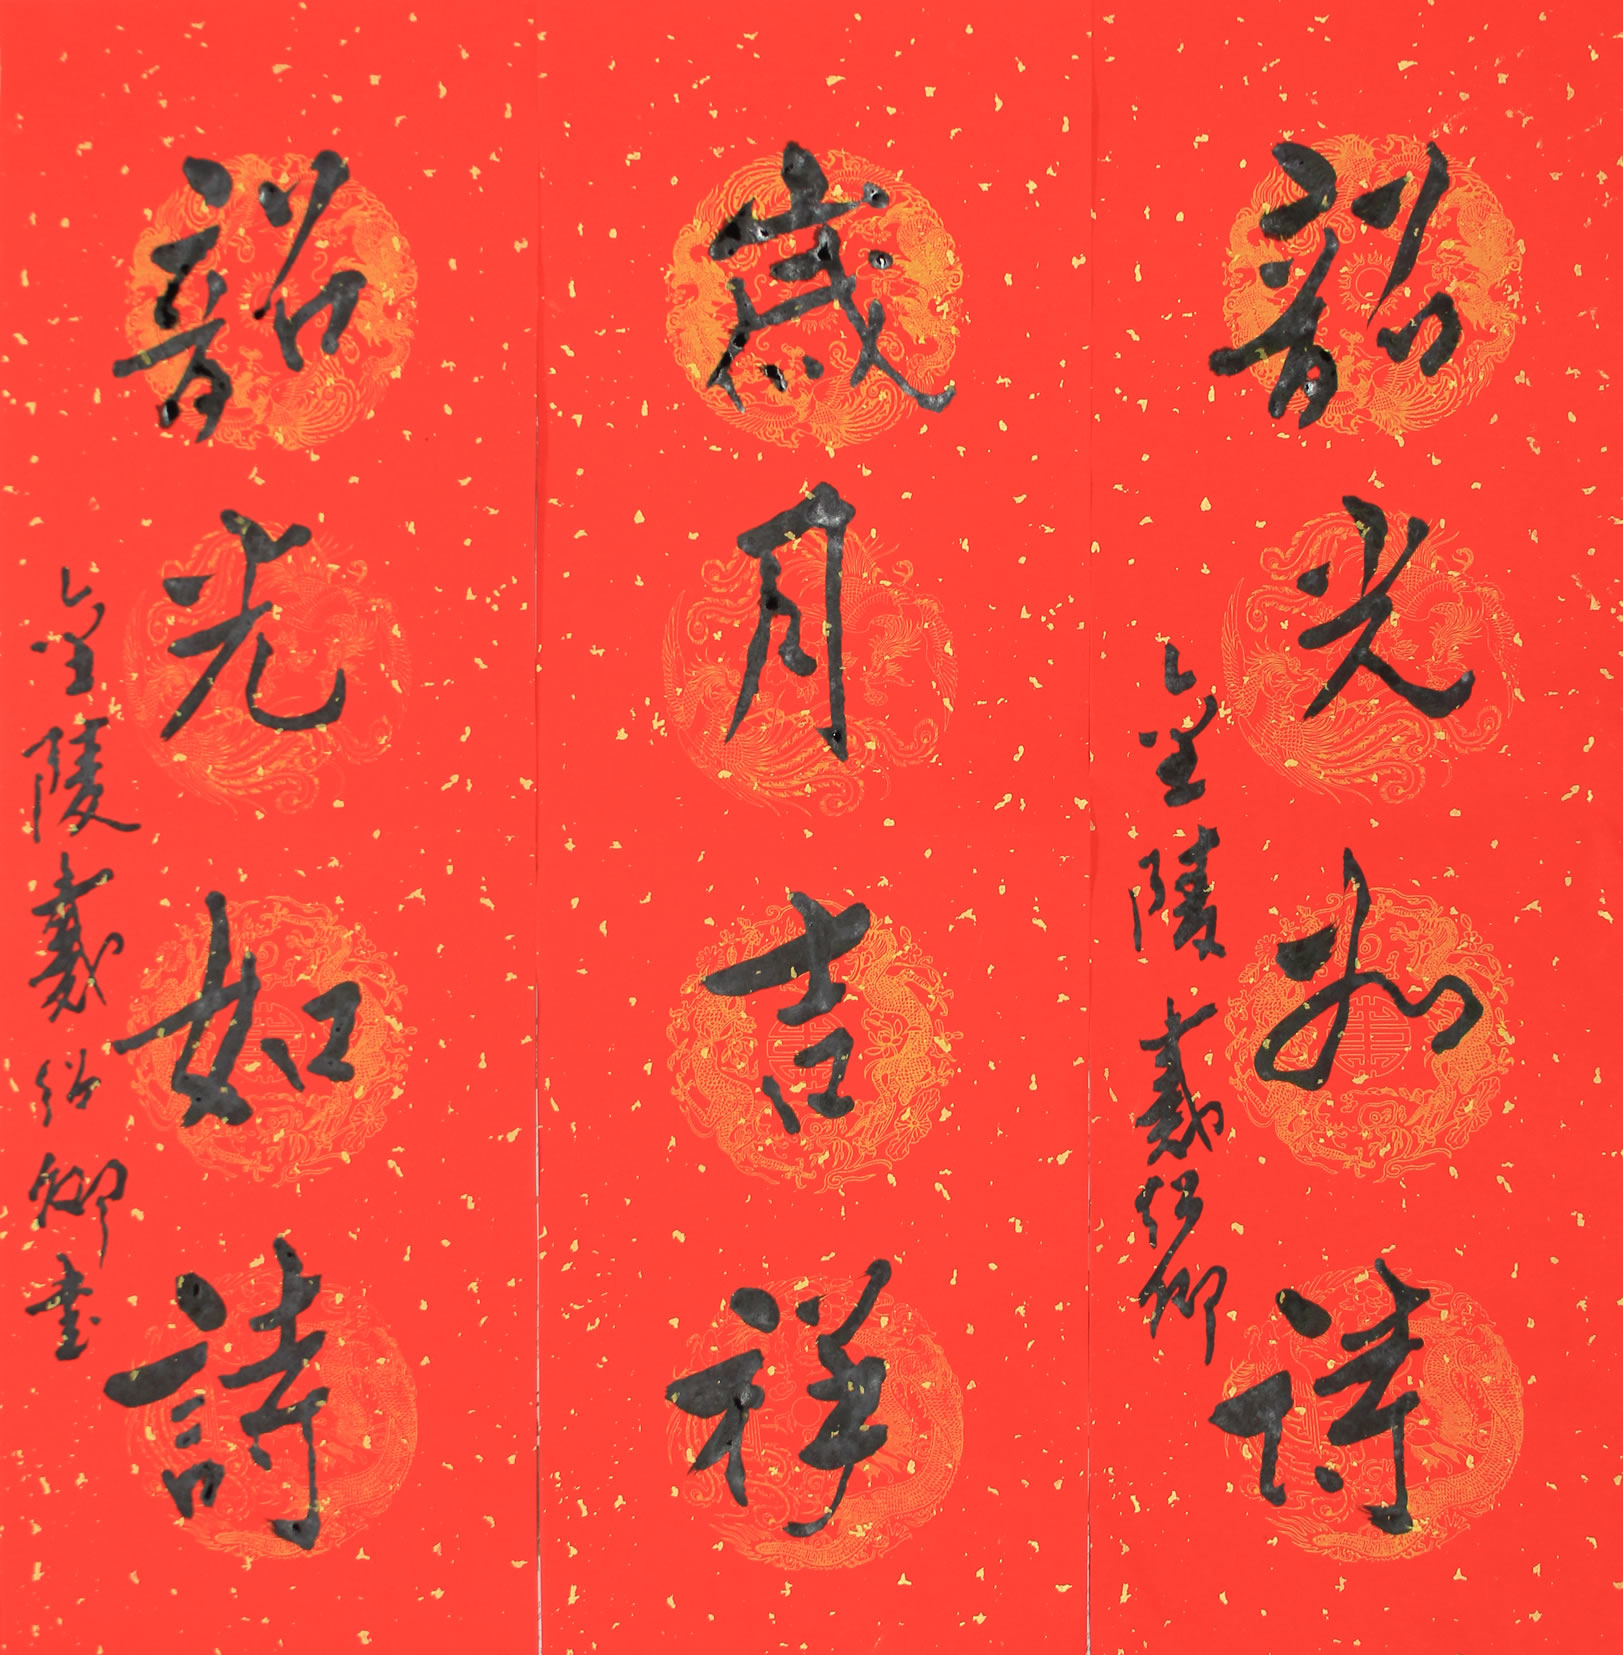 韶光如詩
金陵戴紹卿
歲月吉祥
韶光如詩
金陵戴紹卿書